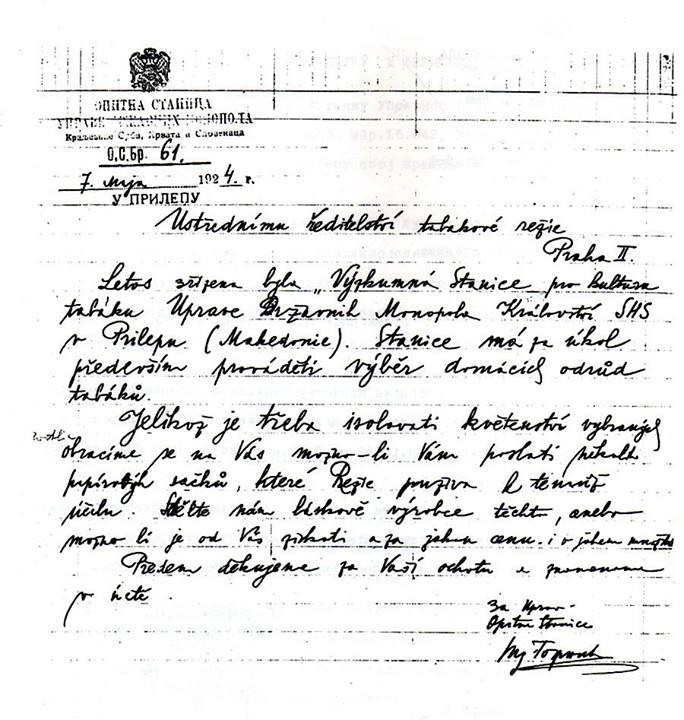 ОПИТНА СТАНИЦА
УПРАВЕ МОНОПОЛА
Краљевине Срба, Хрвата и Словенаца
О.С.Бр. 61.
7. маја 1924. г.
У ПРИЛЕПУ
Ustřednímu ředitelství tabakové režie
Praha II.
Letos zřízena byla „Výzkumná Stanice pro kulturu
tabáku Uprave Državnih Monopola Království SHS
v Prilepu (Makedonie). Stanice má za úkol
především prováděti výběr domácich odrůd
tabáků.
Jelikož je třeba isolovati květenství vybraných
obracíme se na Vás možno-li Vám poslati několik
papírových sačků, které Režie používa k témuž
účelu. nám láskavě výrobce těchto, anebo
možno li je od Vás získati a za jakou cenu i v jakem
Předem děkujeme za Vaší ochotu a znamename
v úctě.
За Управ
Опитне Станице